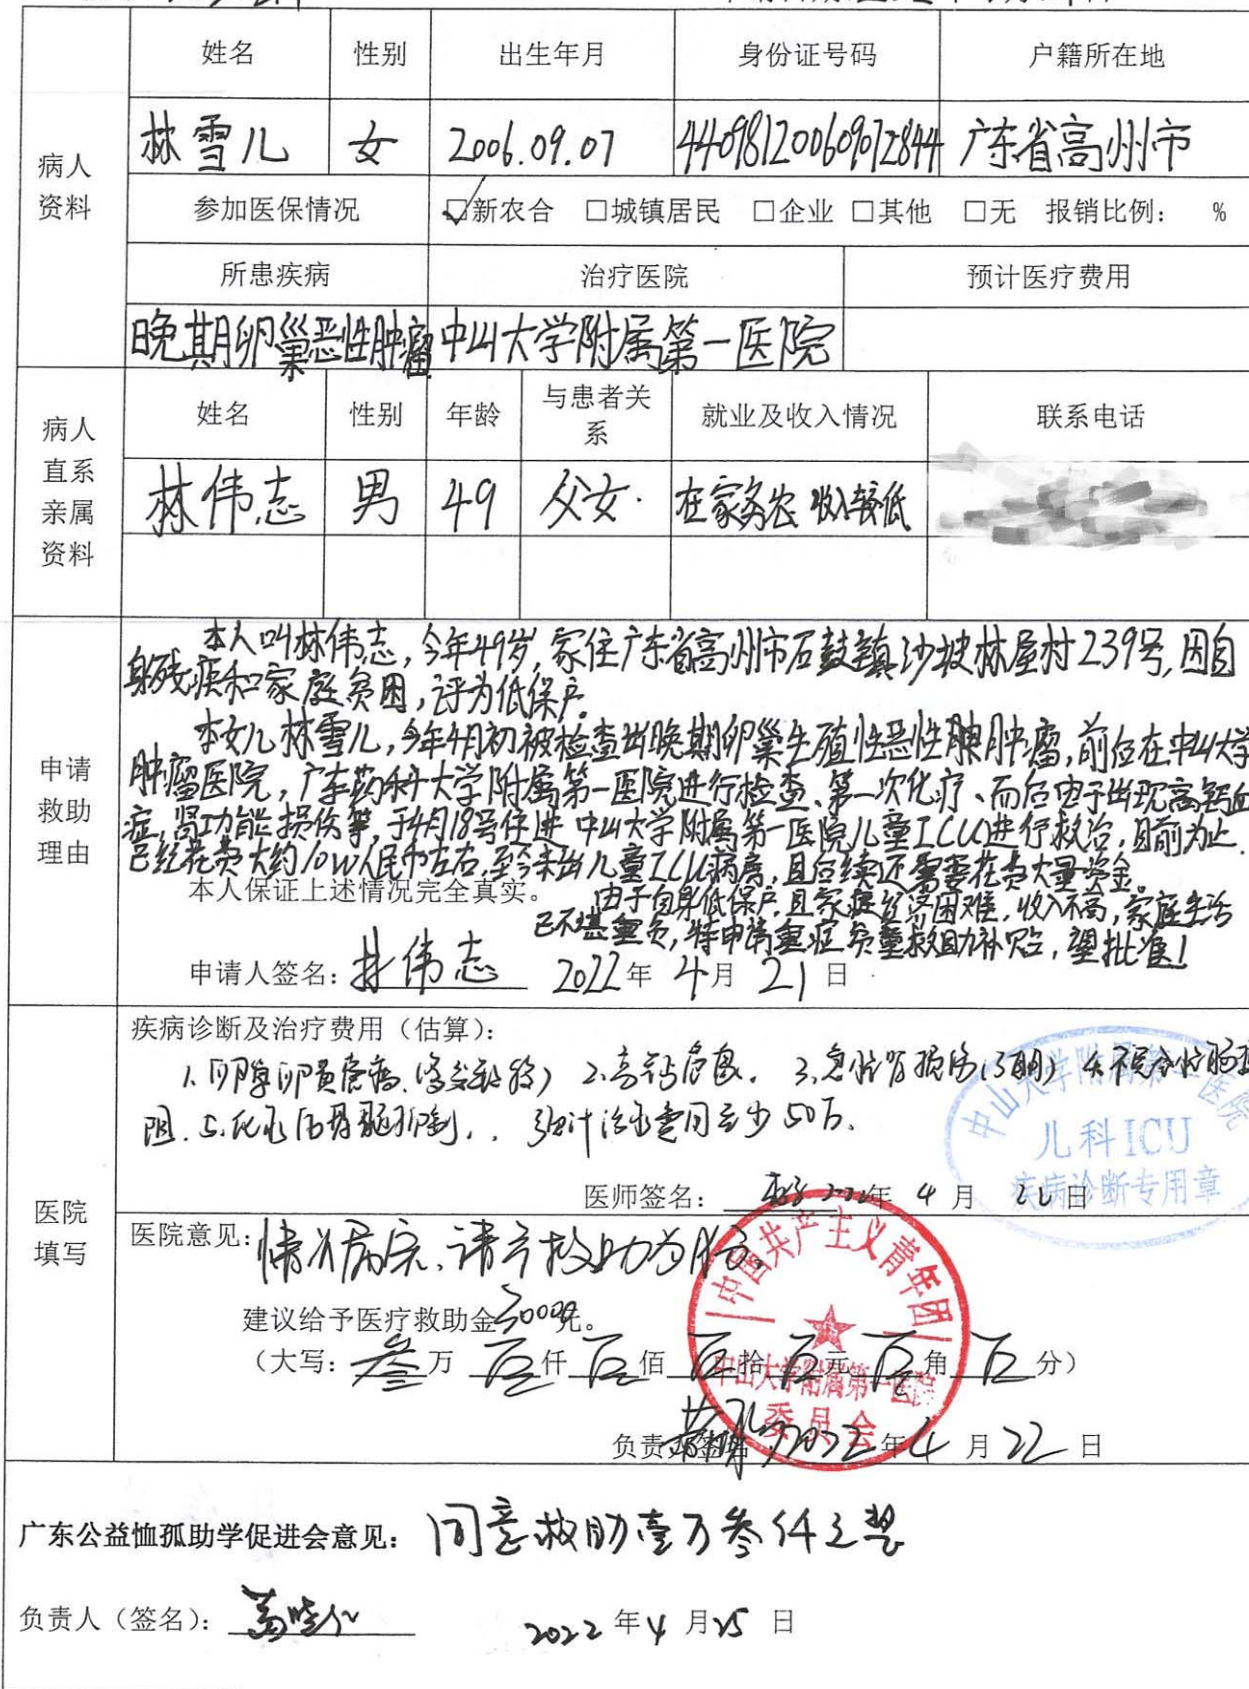 姓名 性别 出生年月 身份证号码 户籍所在地
病人资料
林雪儿 女 2006.09.07 440981200609072844 广东省高州市
参加医保情况 ☑新农合 □城镇居民 □企业 □其他 □无 报销比例： %
所患疾病 治疗医院 预计医疗费用
晚期卵巢恶性肿瘤 中山大学附属第一医院
病人直系亲属资料
姓名 性别 年龄 与患者关系 就业及收入情况 联系电话
林伟志 男 49 父女. 在家务农 收入较低
申请救助理由
本人叫林伟志，今年49岁，家住广东省高州市石鼓镇沙坡林屋村239号，因自
身残疾和家庭贫困，评为低保户。
本女儿林雪儿，今年4月初被检查出晚期卵巢生殖性恶性肿瘤，前后在中山大学
肿瘤医院，广东药科大学附属第一医院进行检查、第一次化疗、而后由于出现高钙血
症，肾功能损伤等，于4月18号住进中山大学附属第一医院儿童ICU进行救治，目前为止.
已经花费大约10W人民币左右，至今未出儿童ICU病房，且后续还需要花费大量资金。
本人保证上述情况完全真实。
由于自身低保户，且家庭经济困难，收入不高，家庭生活
已不堪重负，特申请重症儿童救助补贴，望批准！
申请人签名：林伟志 2022年 4月 21日
医院填写
疾病诊断及治疗费用（估算）：
1. 2.高钙危象. 3.急性肾损伤(3期) 4.不完全性肠梗
阻. 5.化疗后骨髓抑制. 预计治疗费用至少50万.
中山大学附属第一医院
儿科ICU
疾病诊断专用章
医师签名： 2022年 4月 22日
医院意见：情况属实，请予救助为盼.
建议给予医疗救助金30000元。
（大写：叁万 零仟 零佰 零拾 零元 零角 零分）
中国共产主义青年团
中山大学附属第一医院
委员会
负责人签名： 2022年4月22日
广东公益恤孤助学促进会意见：同意救助壹万叁仟元整
负责人（签名）： 2022年4月25日